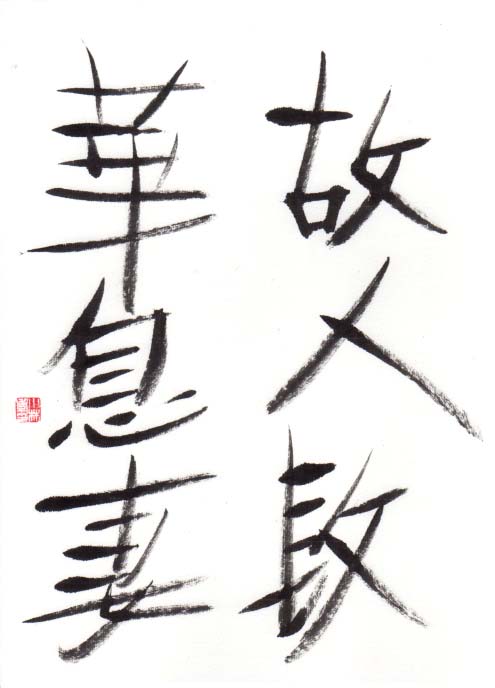 故人段
華息妻